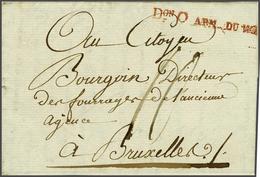 Don O ARM. DU
Au Citoyen
Bourgoin Directeur
des fourrages de l'ancienne
agence
à Bruxelles ./.